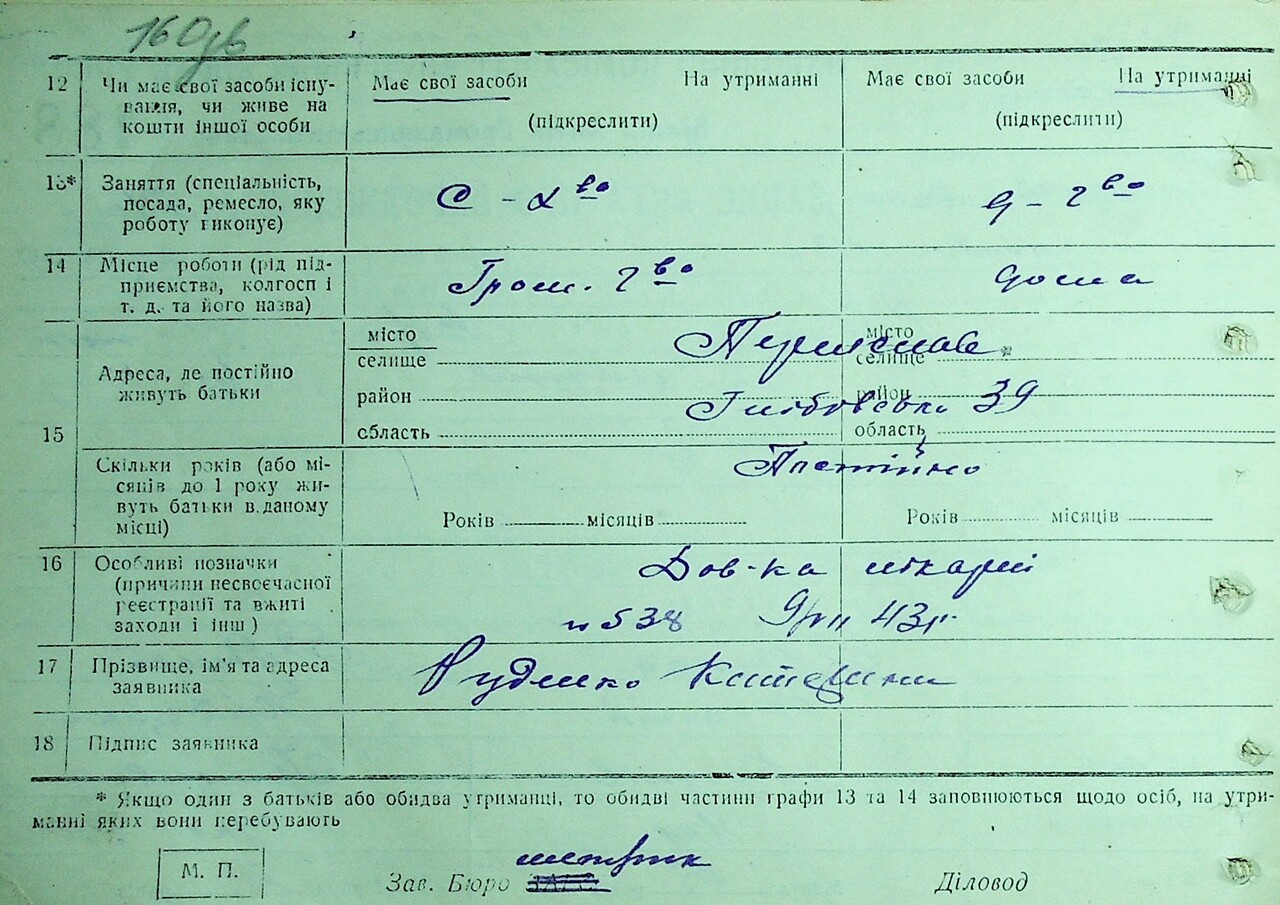 12 Чи має свої засоби існу-
вання, чи живе на
кошти іншої особи
Має свої засоби На утриманні
(підкреслити)
Має свої засоби На утриманні
(підкреслити)
13* Заняття (спеціальність,
посада, ремесло, яку
роботу виконує)
С-г во
д-г во
14 Місце роботи (рід під-
приємства, колгосп і
т. д. та його назва)
Гром. г во
дома
15 Адреса, де постійно
живуть батьки
місто
селище
район
область
місто
селище
район
область
Переяслав
39
Скільки років (або мі-
сяців до 1 року жи-
вуть батьки в даному
місці)
Постійно
Років місяців
Років місяців
16 Особливі позначки
(причини несвоєчасної
реєстрації та вжиті
заходи і інш)
Дов-ка лікарні
43р.
17 Прізвище, ім'я та адреса
заявника
Руденко Катерина
18 Підпис заявника
* Якщо один з батьків або обидва утриманці, то обидві частини графи 13 та 14 заповнюються щодо осіб, на утри-
манні яких вони перебувають
М. П.
метрик
Зав. Бюро ЗАГС
Діловод